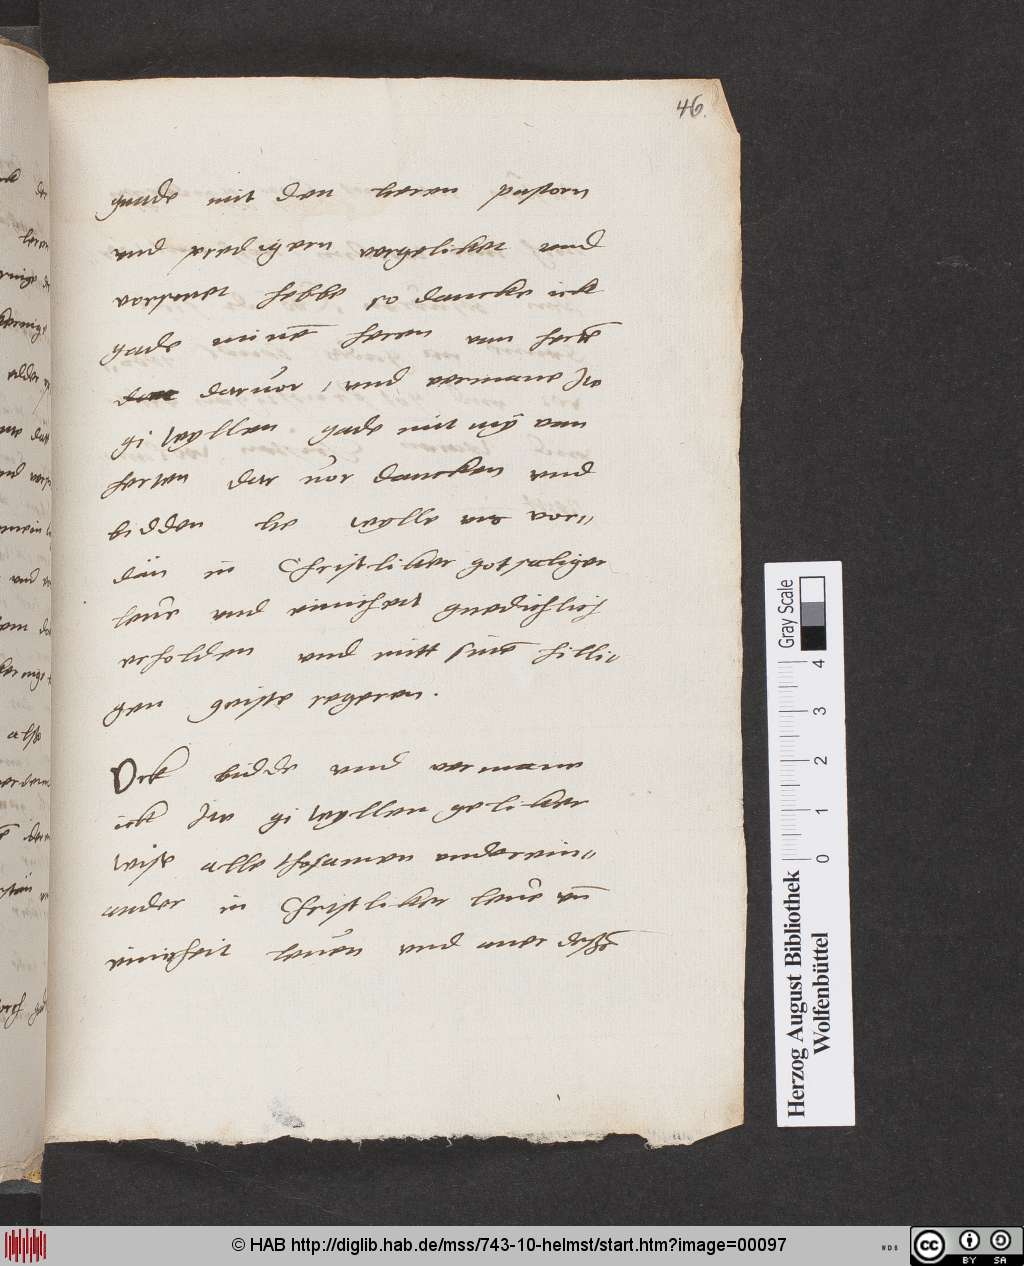 46.
gnade mit den heren pastorn
und predigern vorgeliket und
vorsonet hebbe so dancke ick
gade minē heren van hertē
daruor, und vermane Jw
gi wyllen gade mit my van
herten dar vor dancken und
bidden he wylle uns vor=
dan in Christliker gotsaliger
leue und einicheit gnedichlich
erholden und mitt sinē hilli=
gen geiste regeren.
Ock bidde und vermane
ick Jw gi wyllen geliker
wise alle thosamen underein=
ander in Christliker leue uñ
einicheit leuen und auer
Herzog August Bibliothek
Wolfenbüttel
Gray Scale
0 1 2 3 4
© HAB http://diglib.hab.de/mss/743-10-helmst/start.htm?image=00097
cc BY SA